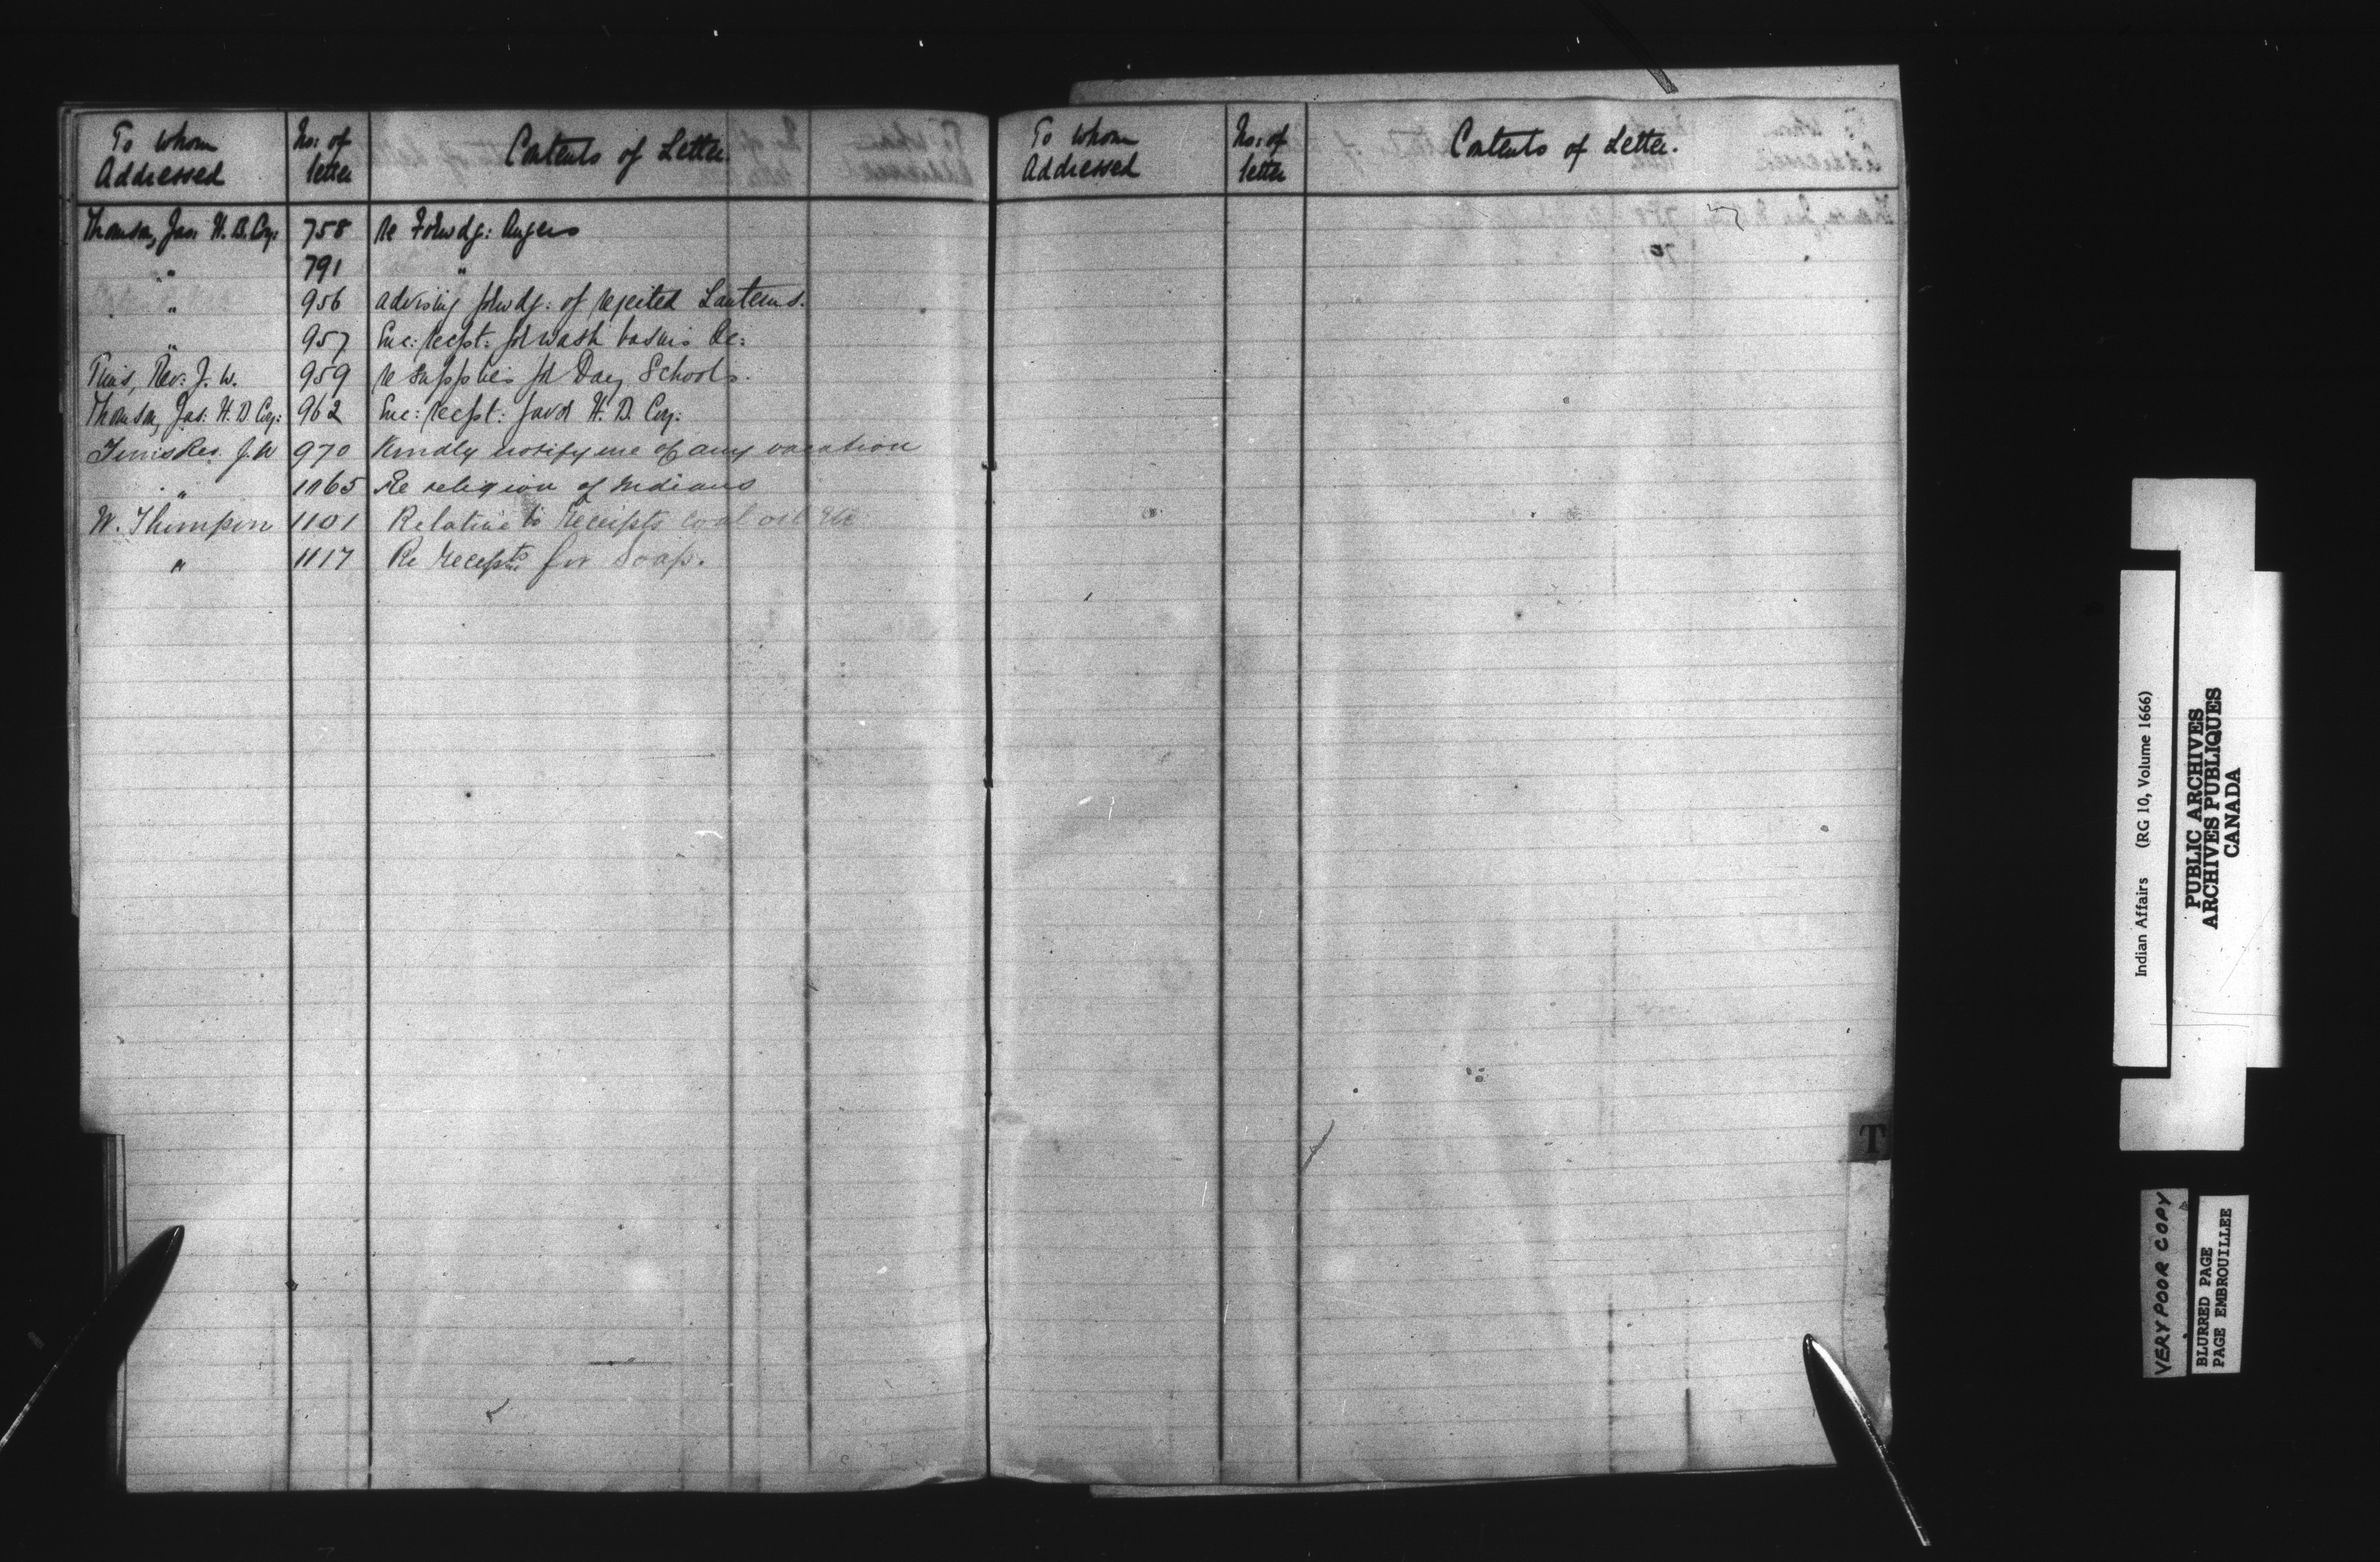 To whom Addressed | No: of letter | Contents of Letter.
Thomson, Jas: H. B. Coy: | 758 | re Forwdg: Augers
" | 791 | "
" | 956 | advising forwdg: of rejected Lanterns.
" | 957 | Enc: recpt: for wash basins &c:
Tims, Rev: J. W. | 959 | re supplies for Day Schools.
Thomson, Jas: H. B Coy: | 962 | Enc: recpt: favor H. B. Coy:
Tims Rev. J. W | 970 | Kindly notify me of any vacation
" | 1065 | Re religion of Indians
W. Thompson | 1101 | Relative to receipts coal oil etc
" | 1117 | Re receipts for Soap.
To whom Addressed | No: of letter | Contents of Letter.
T
Indian Affairs (RG 10, Volume 1666)
PUBLIC ARCHIVES
ARCHIVES PUBLIQUES
CANADA
VERY POOR COPY
BLURRED PAGE
PAGE EMBROUILLEE